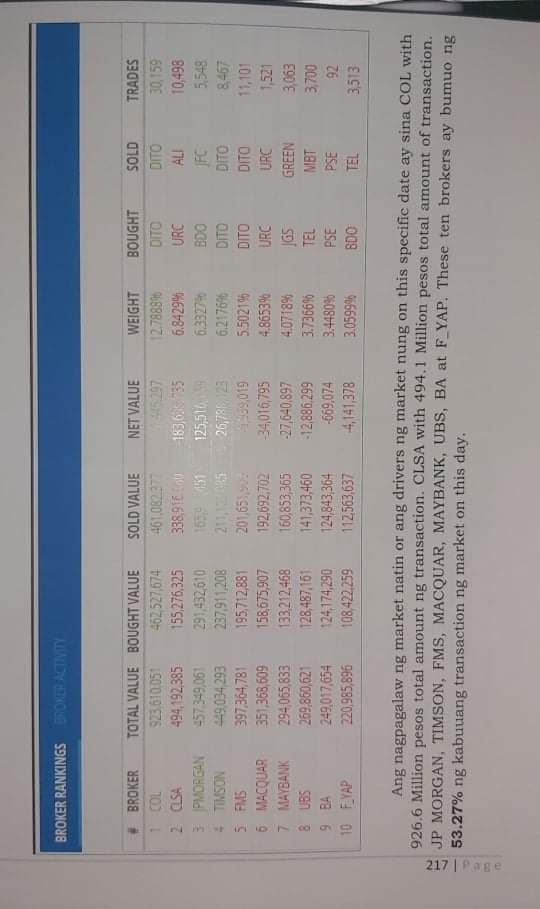 BROKER RANKINGS BROKER ACTIVITY
# BROKER TOTAL VALUE BOUGHT VALUE SOLD VALUE NET VALUE WEIGHT BOUGHT SOLD TRADES
1 COL 923,610,051 462,527,674 461,082,377 12.7888% DITO DITO 30,159
2 CLSA 494,192,385 155,276,325 6.8429% URC ALI 10,498
3 JPMORGAN 457,349,061 291,432,610 6.3327% BDO JFC 5,548
4 TIMSON 449,034,293 237,911,208 6.2176% DITO DITO 8,467
5 FMS 397,364,781 195,712,881 5.5021% DITO DITO 11,101
6 MACQUAR 351,368,609 158,675,907 192,692,702 -34,016,795 4.8653% URC URC 1,521
7 MAYBANK 294,065,833 133,212,468 160,853,365 -27,640,897 4.0718% JGS GREEN 3,063
8 UBS 269,860,621 128,487,161 141,373,460 -12,886,299 3.7366% TEL MBT 3,700
9 BA 249,017,654 124,174,290 124,843,364 -669,074 3.4480% PSE PSE 92
10 F_YAP 220,985,896 108,422,259 112,563,637 -4,141,378 3.0599% BDO TEL 3,513
Ang nagpagalaw ng market natin or ang drivers ng market nung on this specific date ay sina COL with
926.6 Million pesos total amount ng transaction. CLSA with 494.1 Million pesos total amount of transaction.
JP MORGAN, TIMSON, FMS, MACQUAR, MAYBANK, UBS, BA at F_YAP. These ten brokers ay bumuo ng
53.27% ng kabuuang transaction ng market on this day.
217 | Page